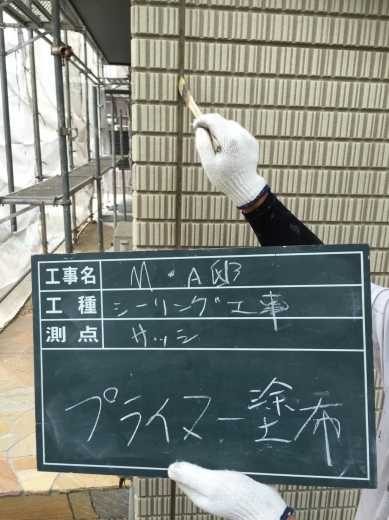 工事名 M・A邸
工種 シーリング工事
測点 サッシ
プライマー塗布